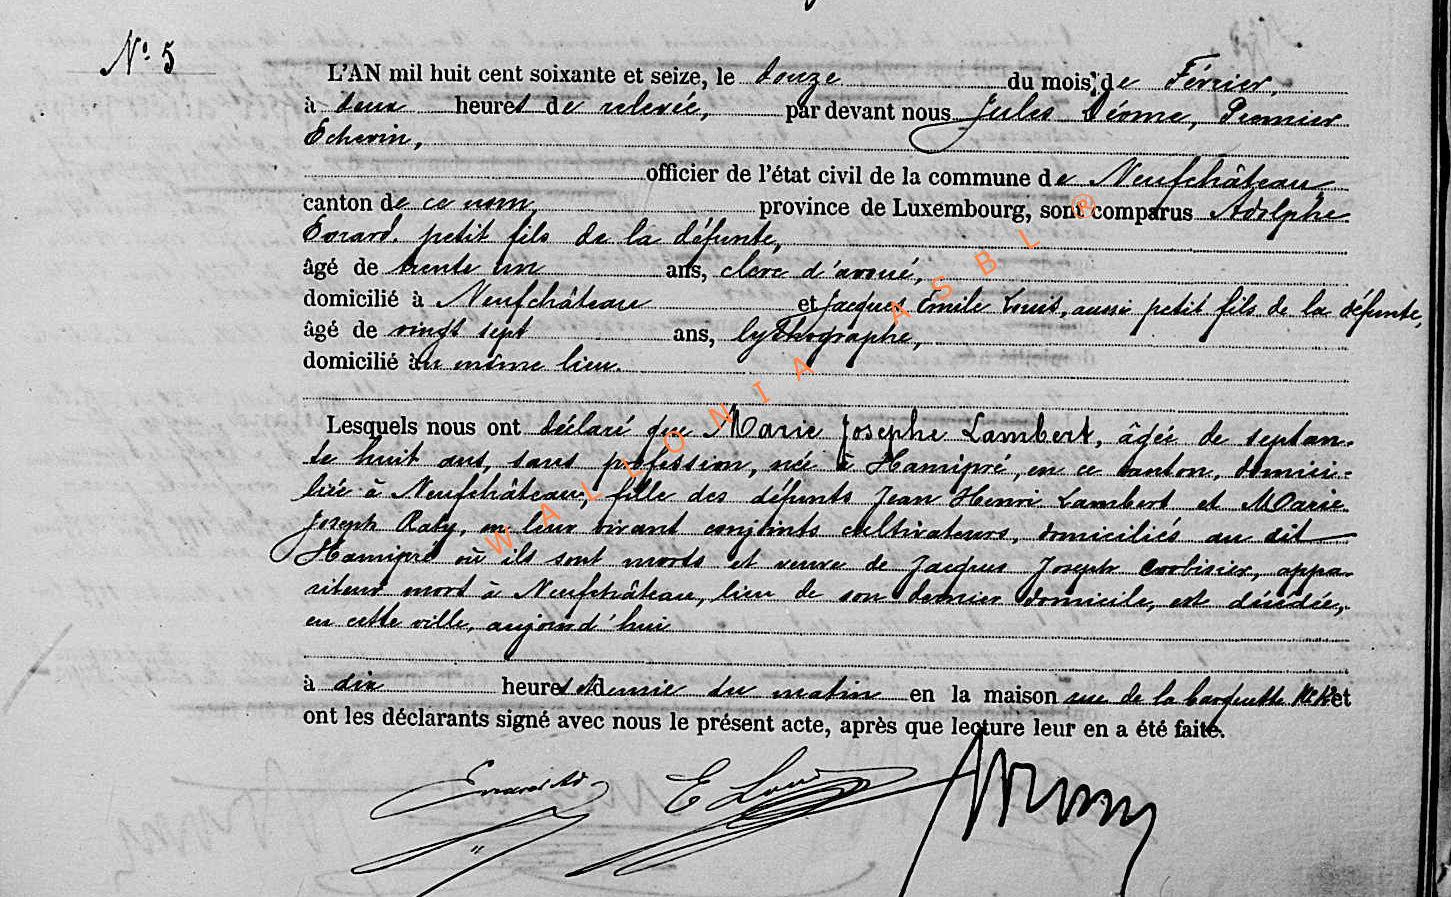 N° 5
L'AN mil huit cent soixante et seize, le douze du mois de Février,
à deux heures de relevée, par devant nous Jules Dérome, Premier
Echevin,
officier de l'état civil de la commune de Neufchâteau
canton de ce nom, province de Luxembourg, sont comparus Adolphe
Evrard, petit fils de la défunte,
âgé de trente un ans, clerc d'avoué,
domicilié à Neufchâteau et Jacques Emile Louis, aussi petit fils de la défunte,
âgé de vingt sept ans, lythographe,
domicilié au même lieu.
Lesquels nous ont déclaré que Marie Josephe Lambert, âgée de septan-
te huit ans, sans profession, née à Hamipré, en ce canton, domici-
liée à Neufchâteau, fille des défunts Jean Henri Lambert et Marie
Joseph Raty, en leur vivant conjoints cultivateurs, domiciliés au dit
Hamipré où ils sont morts et veuve de Jacques Joseph Corbisier, appa-
riteur mort à Neufchâteau, lieu de son dernier domicile, est décédée,
en cette ville, aujourd'hui
à dix heures et demie du matin en la maison rue de la barquette et
ont les déclarants signé avec nous le présent acte, après que lecture leur en a été faite.
Evrard Ad E Louis
WALLONIA ASBL ®